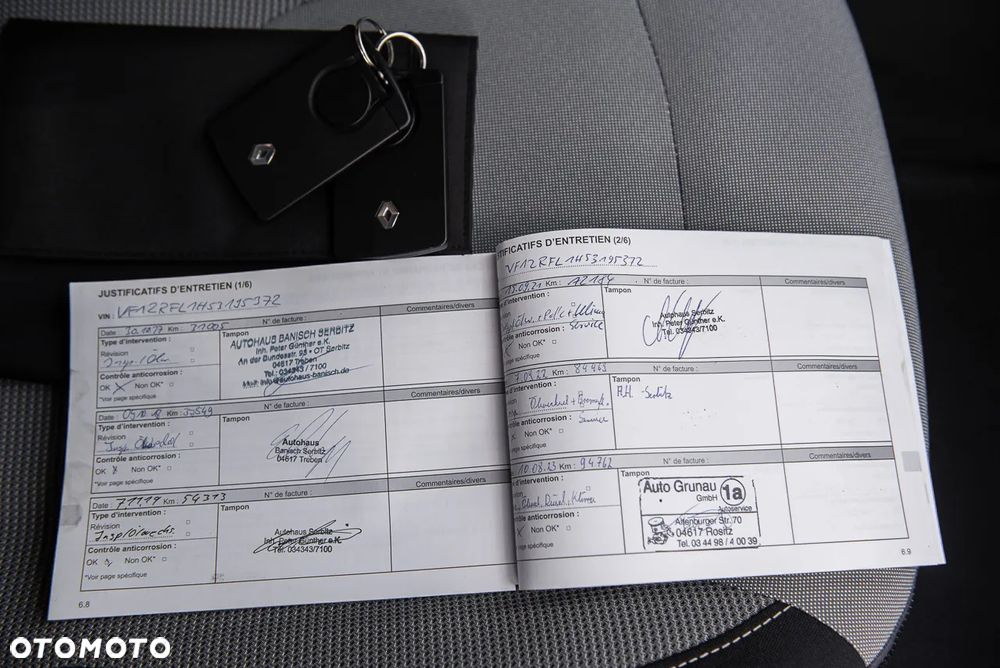 JUSTIFICATIFS D'ENTRETIEN (1/6)
VIN : VF1ZRFL1H53195372
Date : 30.10.17 Km : 21005
N° de facture :
Commentaires/divers
Type d'intervention :
Révision
Insp./Ölw.
Contrôle anticorrosion :
OK Non OK*
*Voir page spécifique
Tampon
AUTOHAUS BANISCH SERBITZ
Inh. Peter Günther e.K.
An der Bundesstr. 95 • OT Serbitz
04617 Treben
Tel.: 034343/7100
Mail: info@autohaus-banisch.de
Date : Km :
N° de facture :
Commentaires/divers
Type d'intervention :
Révision
Insp.
Contrôle anticorrosion :
OK Non OK*
*Voir page spécifique
Tampon
Autohaus
Banisch Serbitz
04617 Treben
Date : Km : 54313
N° de facture :
Commentaires/divers
Type d'intervention :
Révision
Insp/Ölwechs.
Contrôle anticorrosion :
OK Non OK*
*Voir page spécifique
Tampon
Autohaus Serbitz
Inh. Peter Günther e.K.
Tel. 034343/7100
6.8
TIFICATIFS D'ENTRETIEN (2/6)
VF1ZRFL1H53195372
15.09.21 Km :
N° de facture :
Commentaires/divers
d'intervention :
Service
ôle anticorrosion :
Non OK*
page spécifique
Tampon
Autohaus Serbitz
Inh. Peter Günther e.K.
Tel. 034343/7100
7.09.22 Km : 84463
N° de facture :
Commentaires/divers
d'intervention :
Ölwechsel + Bremsfl.
Service
anticorrosion :
Non OK*
page spécifique
Tampon
A.H. Serbitz
10.08.23 Km : 94762
N° de facture :
Commentaires/divers
d'intervention :
ntrôle anticorrosion :
Non OK*
page spécifique
Tampon
Auto Grunau
GmbH
1a
Autoservice
Altenburger Str. 70
04617 Rositz
Tel. 03 44 98 / 4 00 39
6.9
OTOMOTO